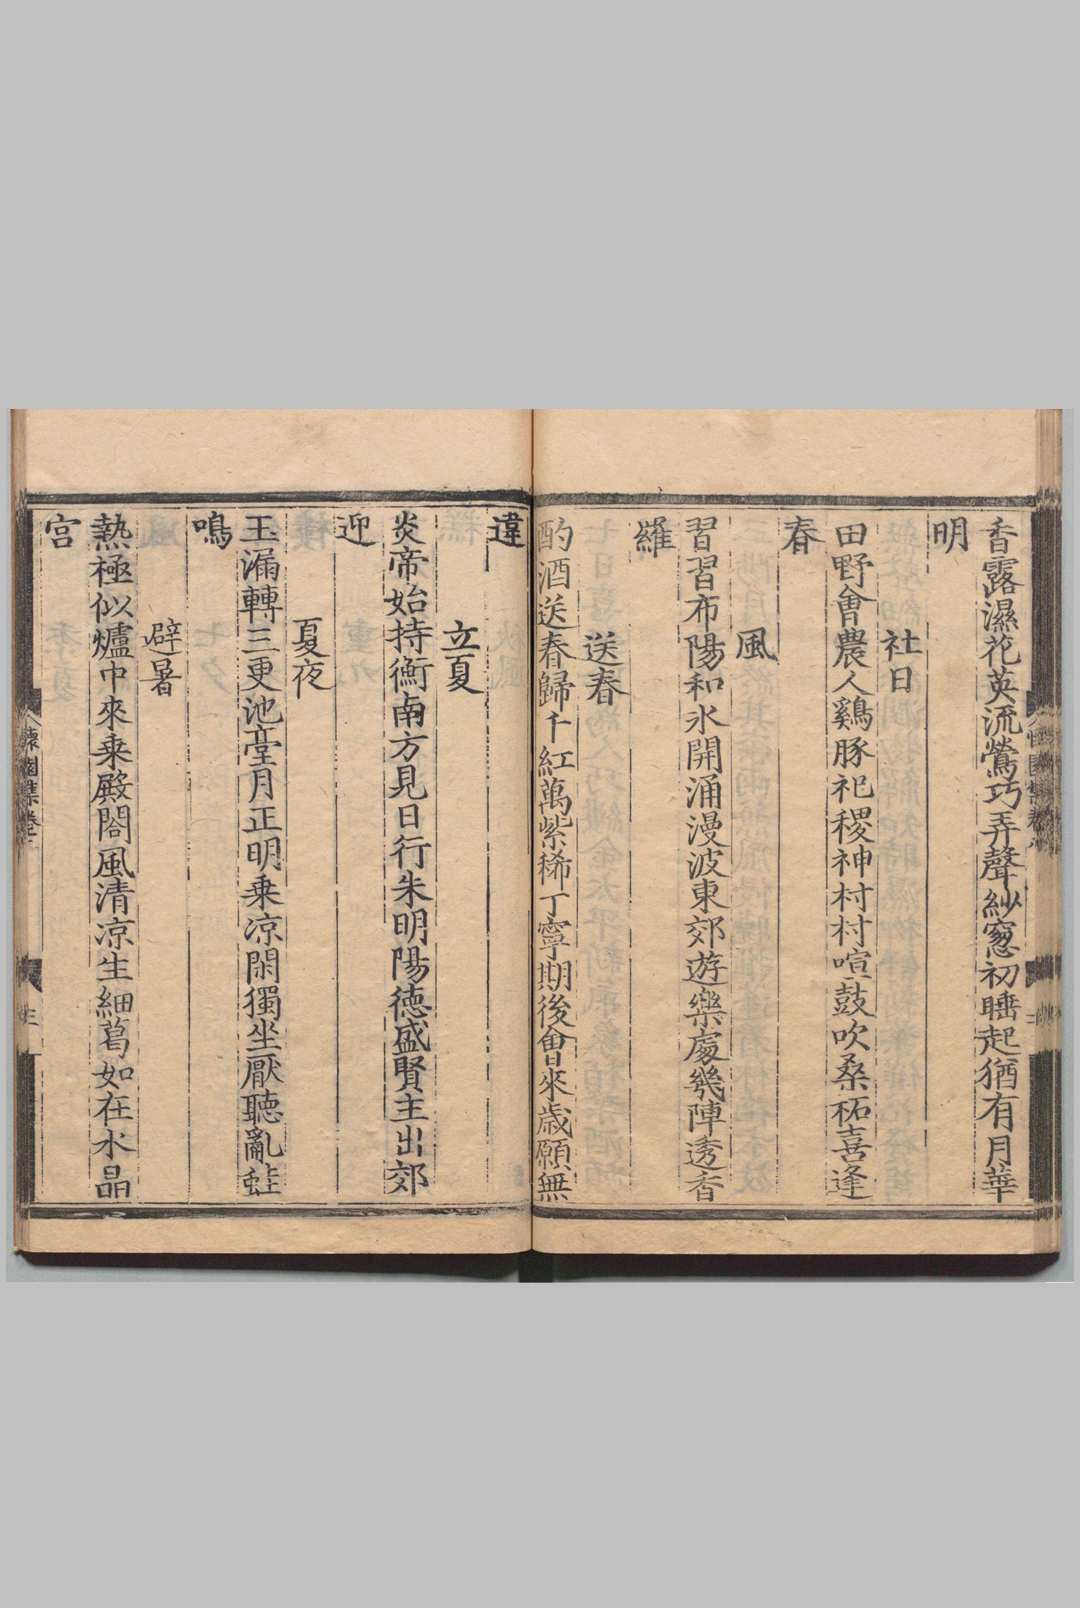 香露濕花英流鶯巧弄聲紗窻初睡起猶有月華
明
社日
田野會農人鷄豚祀稷神村村喧鼓吹桑柘喜逢
春
風
習習布陽和氷開涌漫波東郊遊樂處幾陣透香
羅
送春
酌酒送春歸千紅萬紫稀丁寧期後會來歲願無
違
立夏
炎帝始持衡南方見日行朱明陽德盛賢主出郊
迎
夏夜
玉漏轉三更池臺月正明乗凉閑獨坐厭聽亂蛙
鳴
避暑
熱極似爐中來乗殿閤風清凉生細葛如在水晶
宮
懷園集卷
三